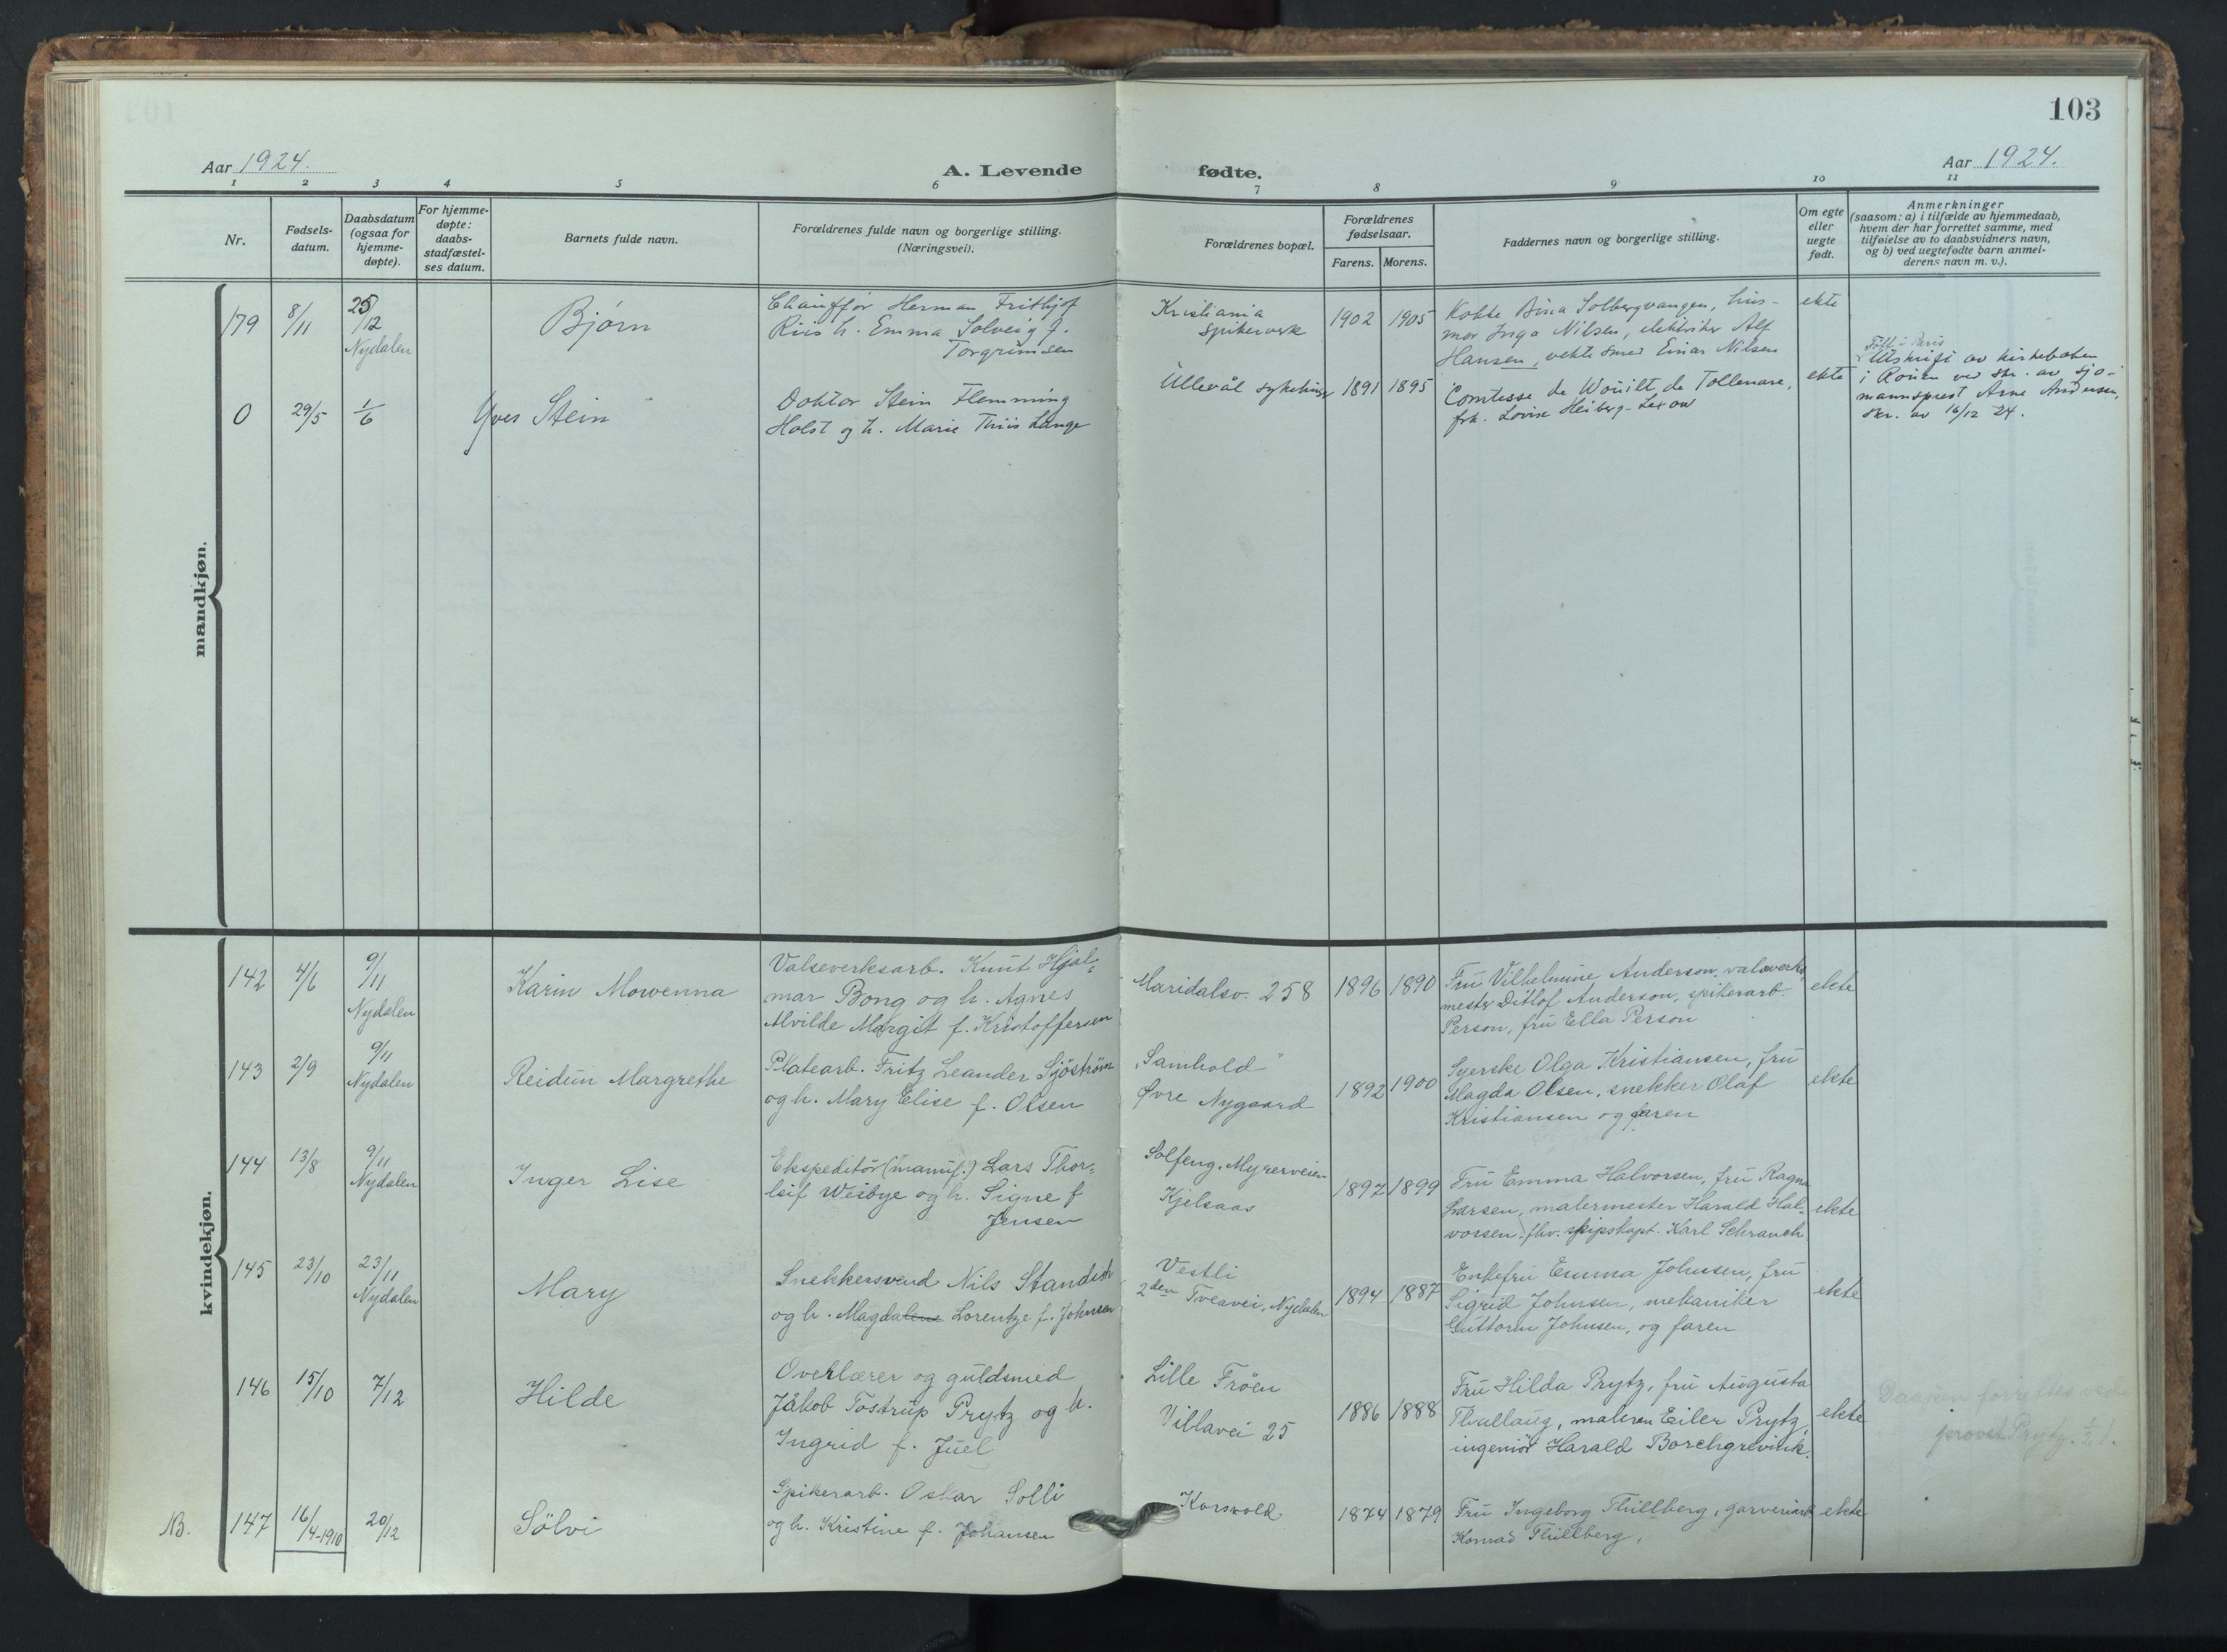 103
Aar 1924.
A. Levende fødte.
Aar 1924.
1 2 3 4 5 6 7 8 9 10 11
Nr.
Fødsels-
datum.
Daabsdatum
(ogsaa for
hjemme-
døpte).
For hjemme-
døpte:
daabs-
stadfæstel-
ses datum.
Barnets fulde navn.
Forældrenes fulde navn og borgerlige stilling.
(Næringsvei).
Forældrenes bopæl.
Forældrenes
fødselsaar.
Farens. Morens.
Faddernes navn og borgerlige stilling.
Om egte
eller
uegte
født.
Anmerkninger
(saasom: a) i tilfælde av hjemmedaab,
hvem der har forrettet samme, med
tilføielse av to daabsvidners navn,
og b) ved uegtefødte barn anmel-
derens navn m. v.).
mandkjøn.
179
8/11
25/12
Nydalen
Bjørn
Chauffør Herman Frithjof
Riis h. Emma Solveig f.
Torgrimsen
Kristiania
Spikerverk
1902
1905
Kokke Bina Solbergvangen, hus-
mor Inga Nilsen, elektriker Alf
Hansen, vekte smed Einar Nilsen
ekte
0
29/5
1/6
Yves Stein
Doktor Stein Flemming
Holst og h. Marie Thiis Lange
Ullevål sykehus
1891
1895
Comtesse de Wouilt de Tollenare,
frk. Lovise Heiberg-Lexow
ekte
Født i Paris
Utskrift av kirkeboken
i Rouen ved skr. av sjø-
mannsprest Arne Andersen,
skr. av 16/12 24.
kvindekjøn.
142
4/6
9/11
Nydalen
Karin Mowenna
Valseverksarb. Knut Hjal-
mar Bong og h. Agnes
Alvilde Margit f. Kristoffersen
Maridalsv. 258
1896
1890
Fru Vilhelmine Anderson, valsverks
mester Ditlof Anderson, spikerarb.
Person, fru Ella Person
ekte
143
2/9
9/11
Nydalen
Reidun Margrethe
Platearb. Fritz Leander Sjöström
og h. Mary Elise f. Olsen
"Samhold"
Øvre Nygaard
1892
1900
Syerske Olga Kristiansen, fru
Magda Olsen, snekker Olaf
Kristiansen og faren
ekte
144
13/8
9/11
Nydalen
Inger Lise
Ekspeditör (manuf.) Lars Thor-
leif Weibye og h. Signe f
Jensen
Solfeng, Myrerveien
Kjelsaas
1897
1899
Fru Emma Halvorsen, fru Ragna
Larsen, malermester Harald Hal-
vorsen, fhv. skipskapt. Karl Schranch
ekte
145
23/10
23/11
Nydalen
Mary
Snekkersvend Nils Standish
og h. Magdalene Lorentze f. Johnsen
Vestli
2den Tveavei, Nydalen
1894
1887
Enkefru Emma Johnsen, fru
Sigrid Johnsen, mekaniker
Guttorm Johnsen, og faren
ekte
146
15/10
7/12
Hilde
Overlærer og guldsmed
Jakob Tostrup Prytz og h.
Ingrid f. Juel
Lille Fröen
Villavei 25
1886
1888
Fru Hilda Prytz, fru Augusta
Thullaug, maleren Eiler Prytz,
ingeniör Harald Borchgrevink.
ekte
Daapen forrettes ved
provst Prytz.
NB.
147
16/4-1910
20/12
Sölvi
Spikerarb. Oskar Solli
og h. Kristine f. Johansen
Korsvold
1874
1879
Fru Ingeborg Thillberg, garveriarb
Konrad Thillberg,
ekte